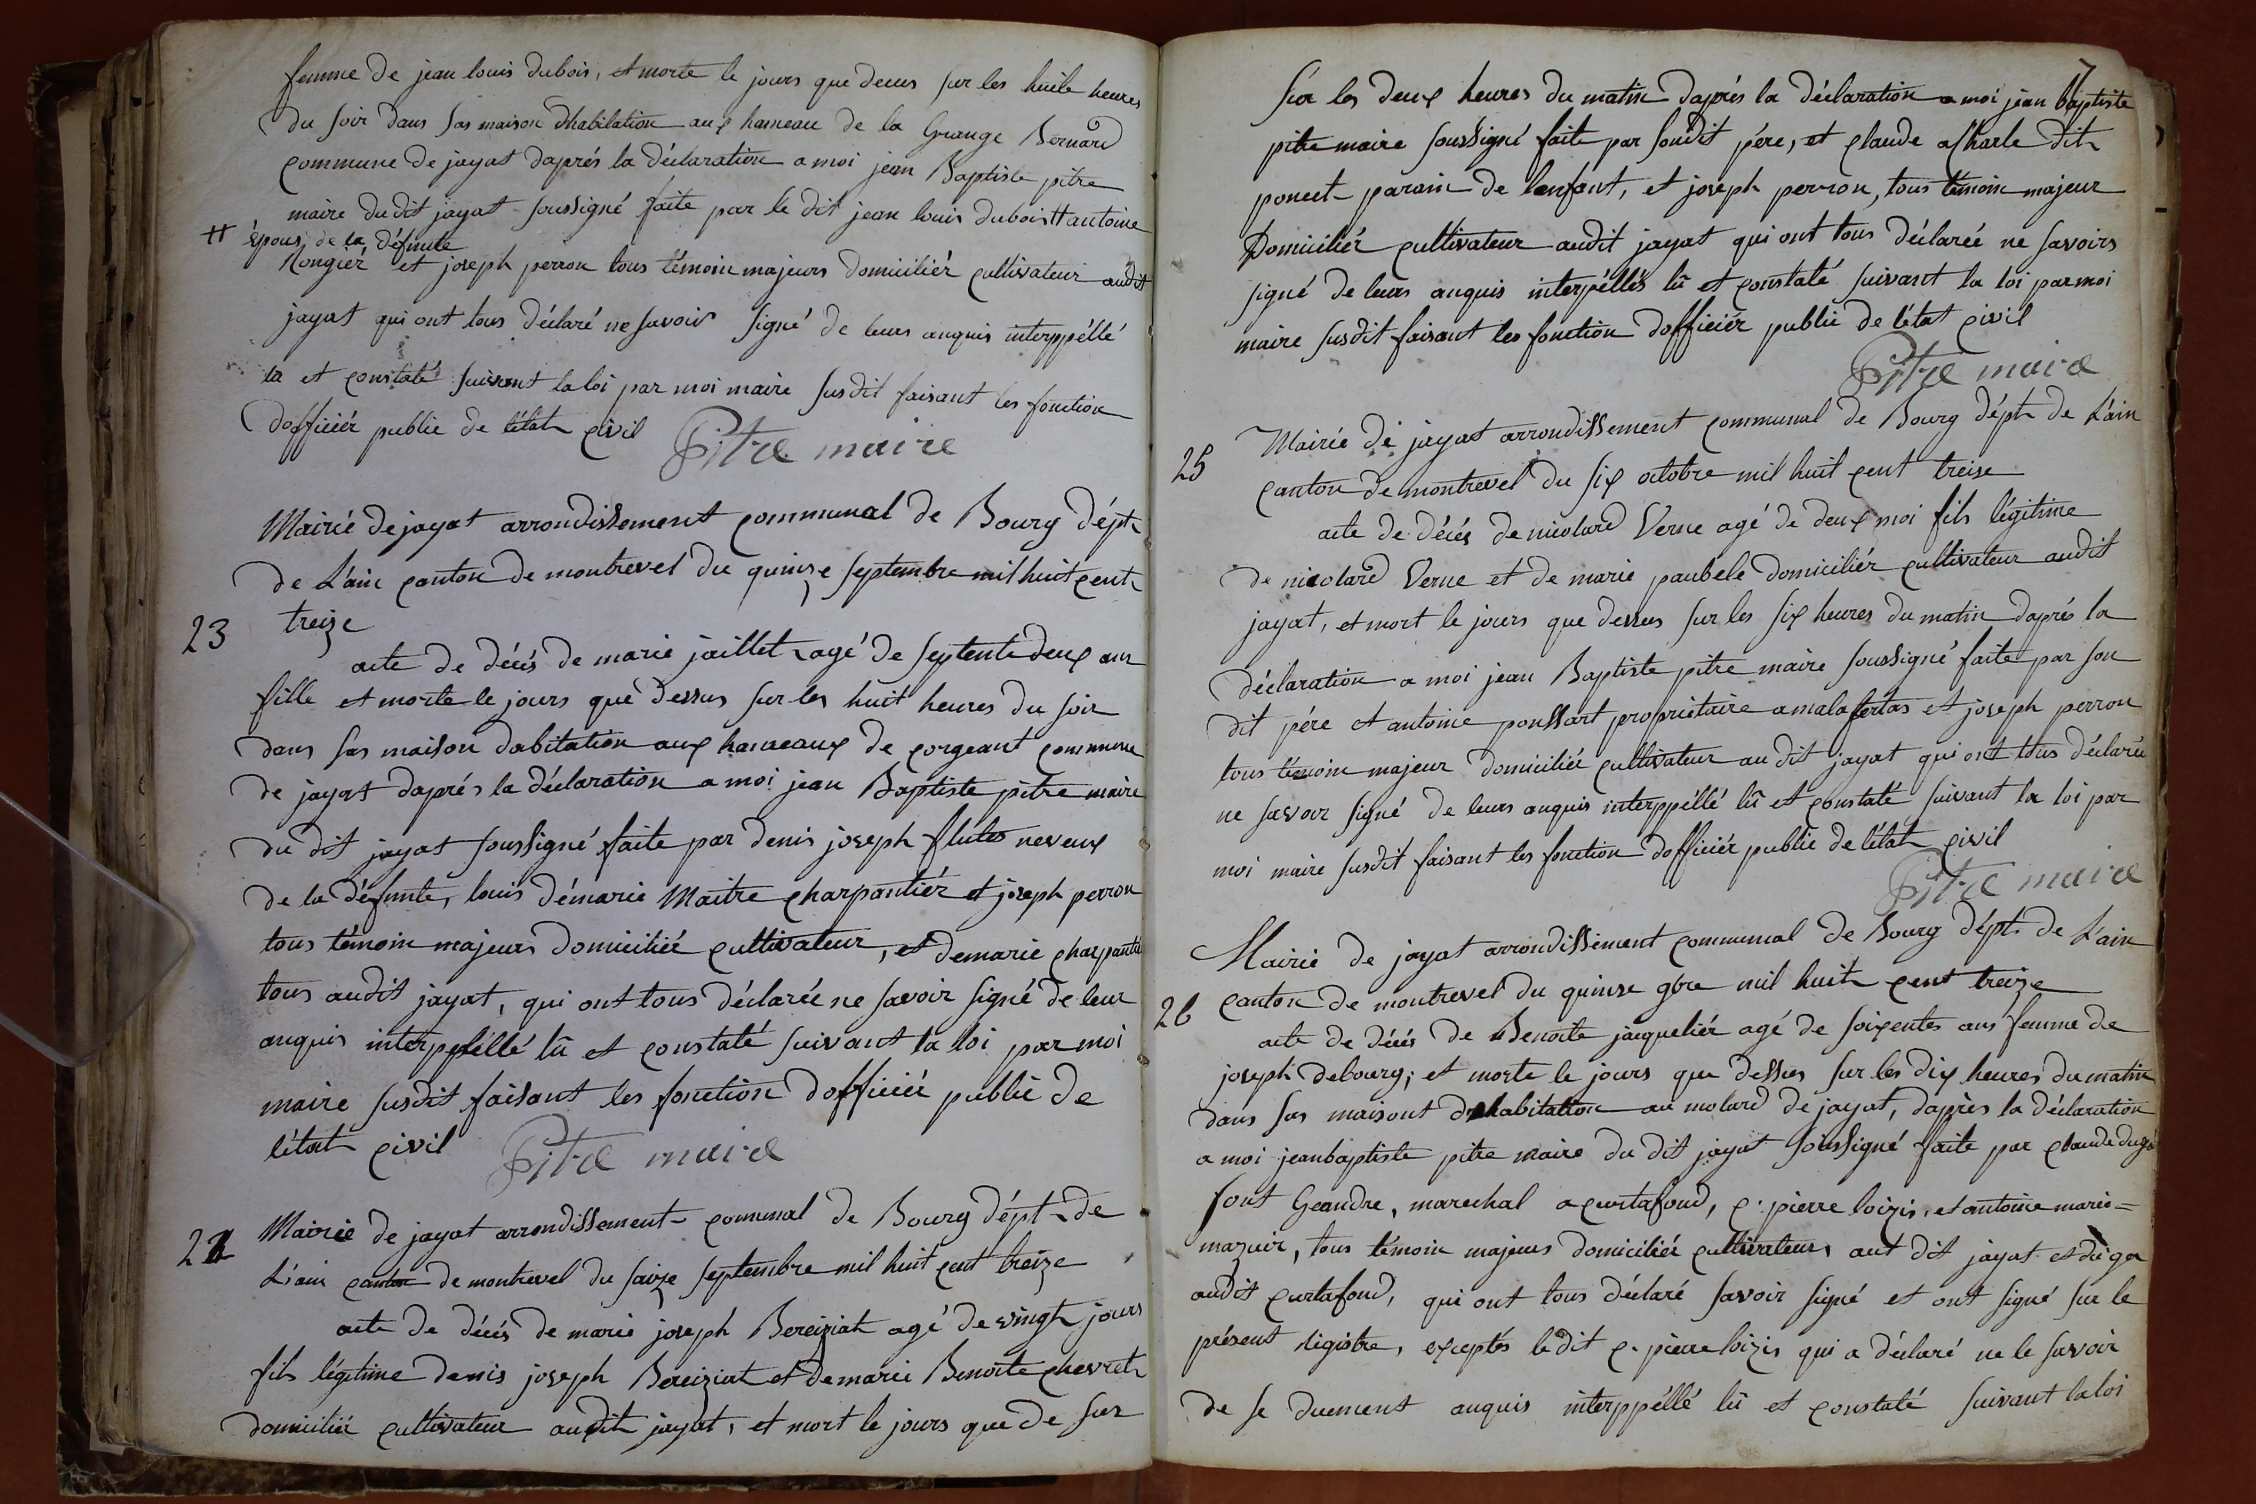 femme de jean louis dubois, et morte le jours que decus sur les huite heures
du soir dans sas maison d'habitation aux hameau de la Grange Bernard
commune de jayat daprés la déclaration a moi jean Baptiste pitre
maire du dit jayat soussigné faite par le dit jean louis dubois # antoine
# épous de la défunte
Rongiér et joseph perron tous témoin majeurs domiciliér cultivateur audit
jayat qui ont tous déclaré ne savoir signé de leurs anquis interppéllé
lu et constaté suivant la loi par moi maire susdit faisant les fonction
dofficiér public de létat civil Pitre maire
Mairie de jayat arrondissement communal de Bourg dépt
de L'ain canton de montrevel du quinze septembre mil huit cent
23 treize
acte de décés de marie jaillet agé de septente deux ans
fille et morte le jours que dessus sur les huit heures du soir
dans sas maison dabitation aux hameaux de corgeant commune
de jayat daprés la déclaration a moi jean Baptiste pitre maire
du dit jayat soussigné faite par denis joseph flutes neveux
de la défunte, louis démarie Maitre charpantiér et joseph perron
tous témoin majeurs domiciliée cultivateur, et demarie charpantié
tous audit jayat, qui ont tous déclarée ne savoir signé de leur
anquis interppéllé lû et constaté suivant la loi par moi
maire susdit faisant les fonction dofficiér public de
létat civil Pitre maire
24 Mairie de jayat arrondissement communal de Bourg dépt de
L'ain canton de montrevel du saize septembre mil huit cent treize
acte de décés de marie joseph Bereiziat agé de vingt jours
fils légitime denis joseph Bereiziat et de marie Benoite chevret
domiciliée cultivateur audit jayat, et mort le jours que de sus
7
sur les deux heures du matin daprés la déclaration a moi jean baptiste
pitre maire soussigné faite par soudit pére, et claude a Charle dit
poncet parain de lenfant, et joseph perron, tous témoin majeur
Domiciliér cultivateur audit jayat qui ont tous déclarée ne savoirs
signé de leurs anquis interpéllés lû et constaté suivant la loi par moi
maire susdit faisant les fonction dofficiér public de létat civil
Pitre maire
25 Mairie de jayat arrondissement communal de Bourg dépt de L'ain
canton de montrevel du six octobre mil huit cent treise
acte de décés de nicolard Verne agé de deux moi fils légitime
de nicolard Verne et de marie paubele domiciliér cultivateur audit
jayat, et mort le jours que dessus sur les six heures du matin daprés la
déclaration a moi jean Baptiste pitre maire soussigné faite par son
dit pére et antoine poussart propriétaire a malafertas et joseph perron
tous témoin majeur domiciliée cultivateur au dit jayat qui ont tous déclarée
ne savoir signé de leurs anquis interppéllé lû et constaté suivant la loi par
moi maire susdit faisant les fonction dofficiér public de létat civil
Pitre maire
Mairie de jayat arrondissement communal de Bourg dépt de L'ain
26 canton de montrevel du quinse 9bre mil huit cent treize
acte de décés de Benoite jacqueliér agé de soixentes ans femme de
joseph debourg; et morte le jours que dessus sur les dix heures du matin
dans sas maisont dehabitation au molard de jayat, daprès la déclaration
a moi jeanbaptiste pitre maire du dit jayat soussigné faite par claude duga
sont Geandre, marechal a curtafond, c. pierre loizis, et antoine marie=
mazuir, tous témoin majeurs domiciliée cultivateurs aut dit jayat et duga
audit curtafond, qui ont tous déclaré savoir signé et ont signé sur le
présent régistre, exceptés le dit c. pierre loizis qui a déclaré ne le savoir
de se duement anquis interppéllé lû et constaté suivant la loi